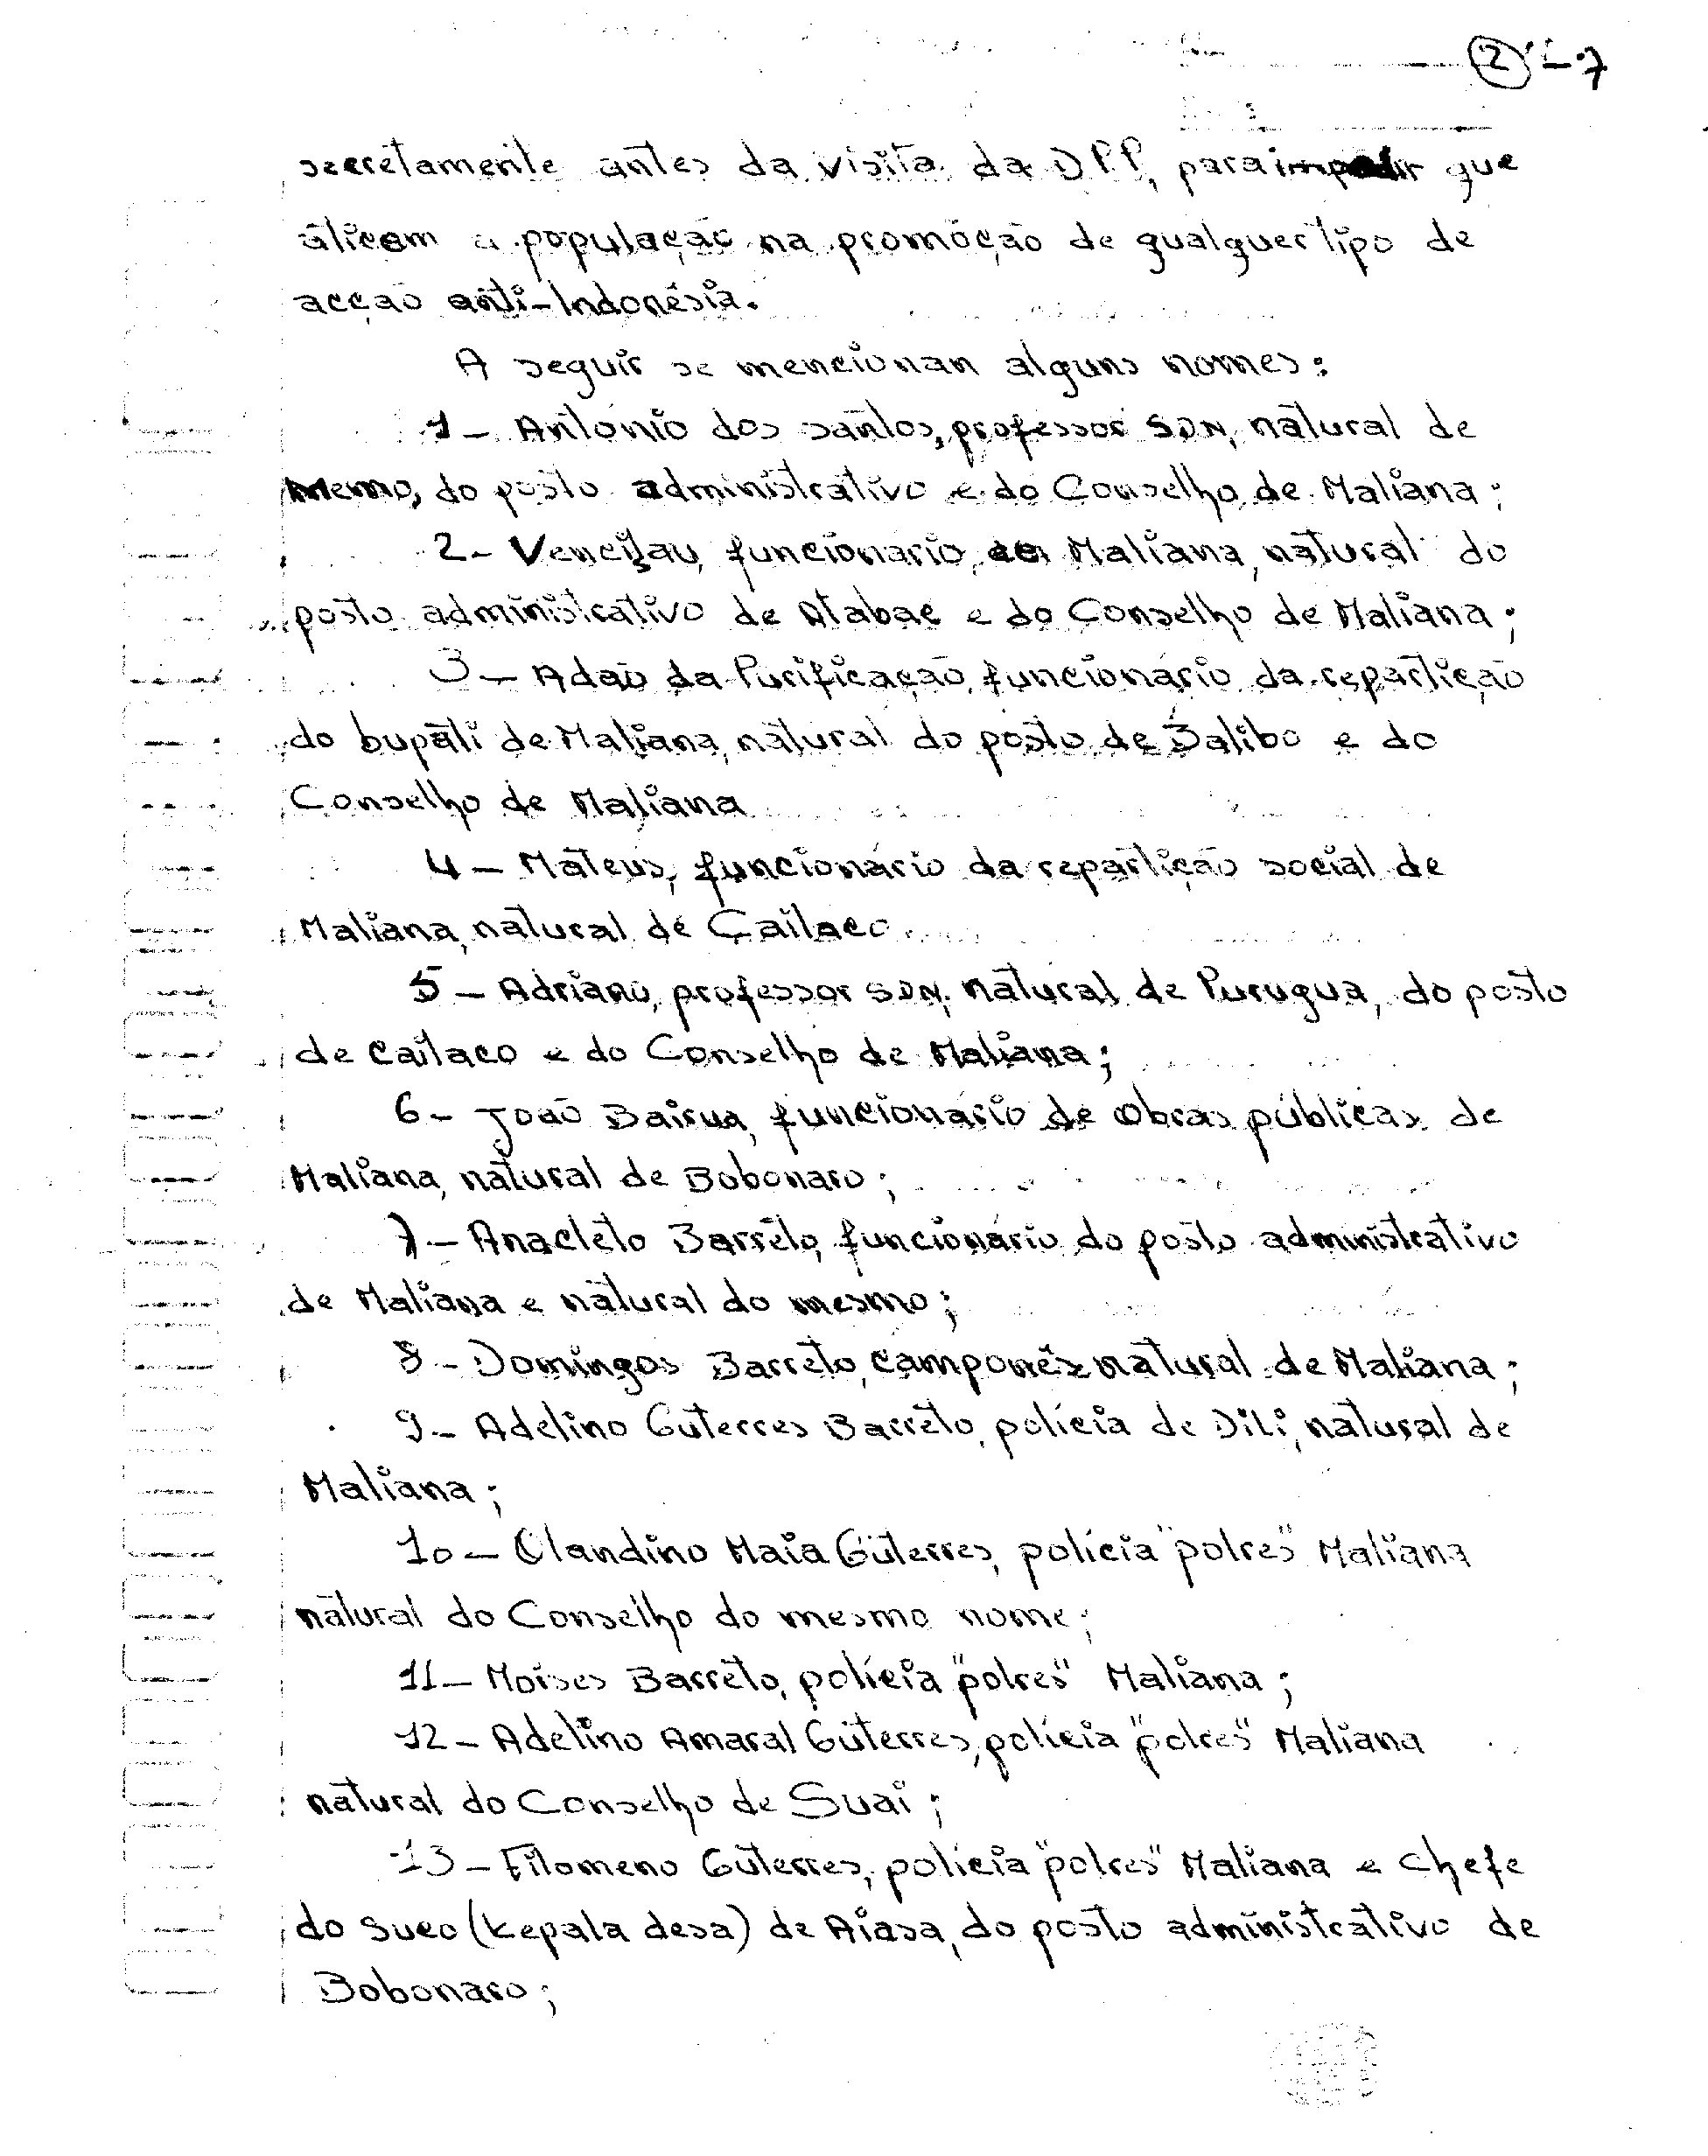 2 1-7
secretamente antes da visita da DPP, para impedir que
aticem a população na promoção de qualquer tipo de
acção anti-Indonésia.
A seguir se mencionan alguns nomes:
1- António dos santos, professor SDN, natural de
Memo, do posto administrativo e do Conselho de Maliana;
2- Vencilau, funcionario em Maliana, natural do
posto administrativo de Atabae e do Conselho de Maliana;
3- Adaõ da Purificação, funcionário da repartição
do bupati de Maliana, natural do posto de Balibo e do
Conselho de Maliana
4- Mateus, funcionário da repartição social de
Maliana, natural de Cailaco
5- Adriano, professor SDN, natural de Purugua, do posto
de Cailaco e do Conselho de Maliana;
6- João Bairua, funcionário de Obras públicas de
Maliana, natural de Bobonaro;
7- Anacleto Barreto, funcionário do posto administrativo
de Maliana e natural do mesmo;
8- Domingos Barreto, camponêz natural de Maliana;
9- Adelino Guterres Barreto, polícia de Dili, natural de
Maliana;
10- Clandino Maia Guterres, polícia "polres" Maliana
natural do Conselho do mesmo nome;
11- Moises Barreto, polícia "polres" Maliana;
12- Adelino Amaral Guterres, polícia "polres" Maliana
natural do Conselho de Suai;
13- Filomeno Guterres, polícia "polres" Maliana e Chefe
do Suco (kepala desa) de Aiasa, do posto administrativo de
Bobonaro;